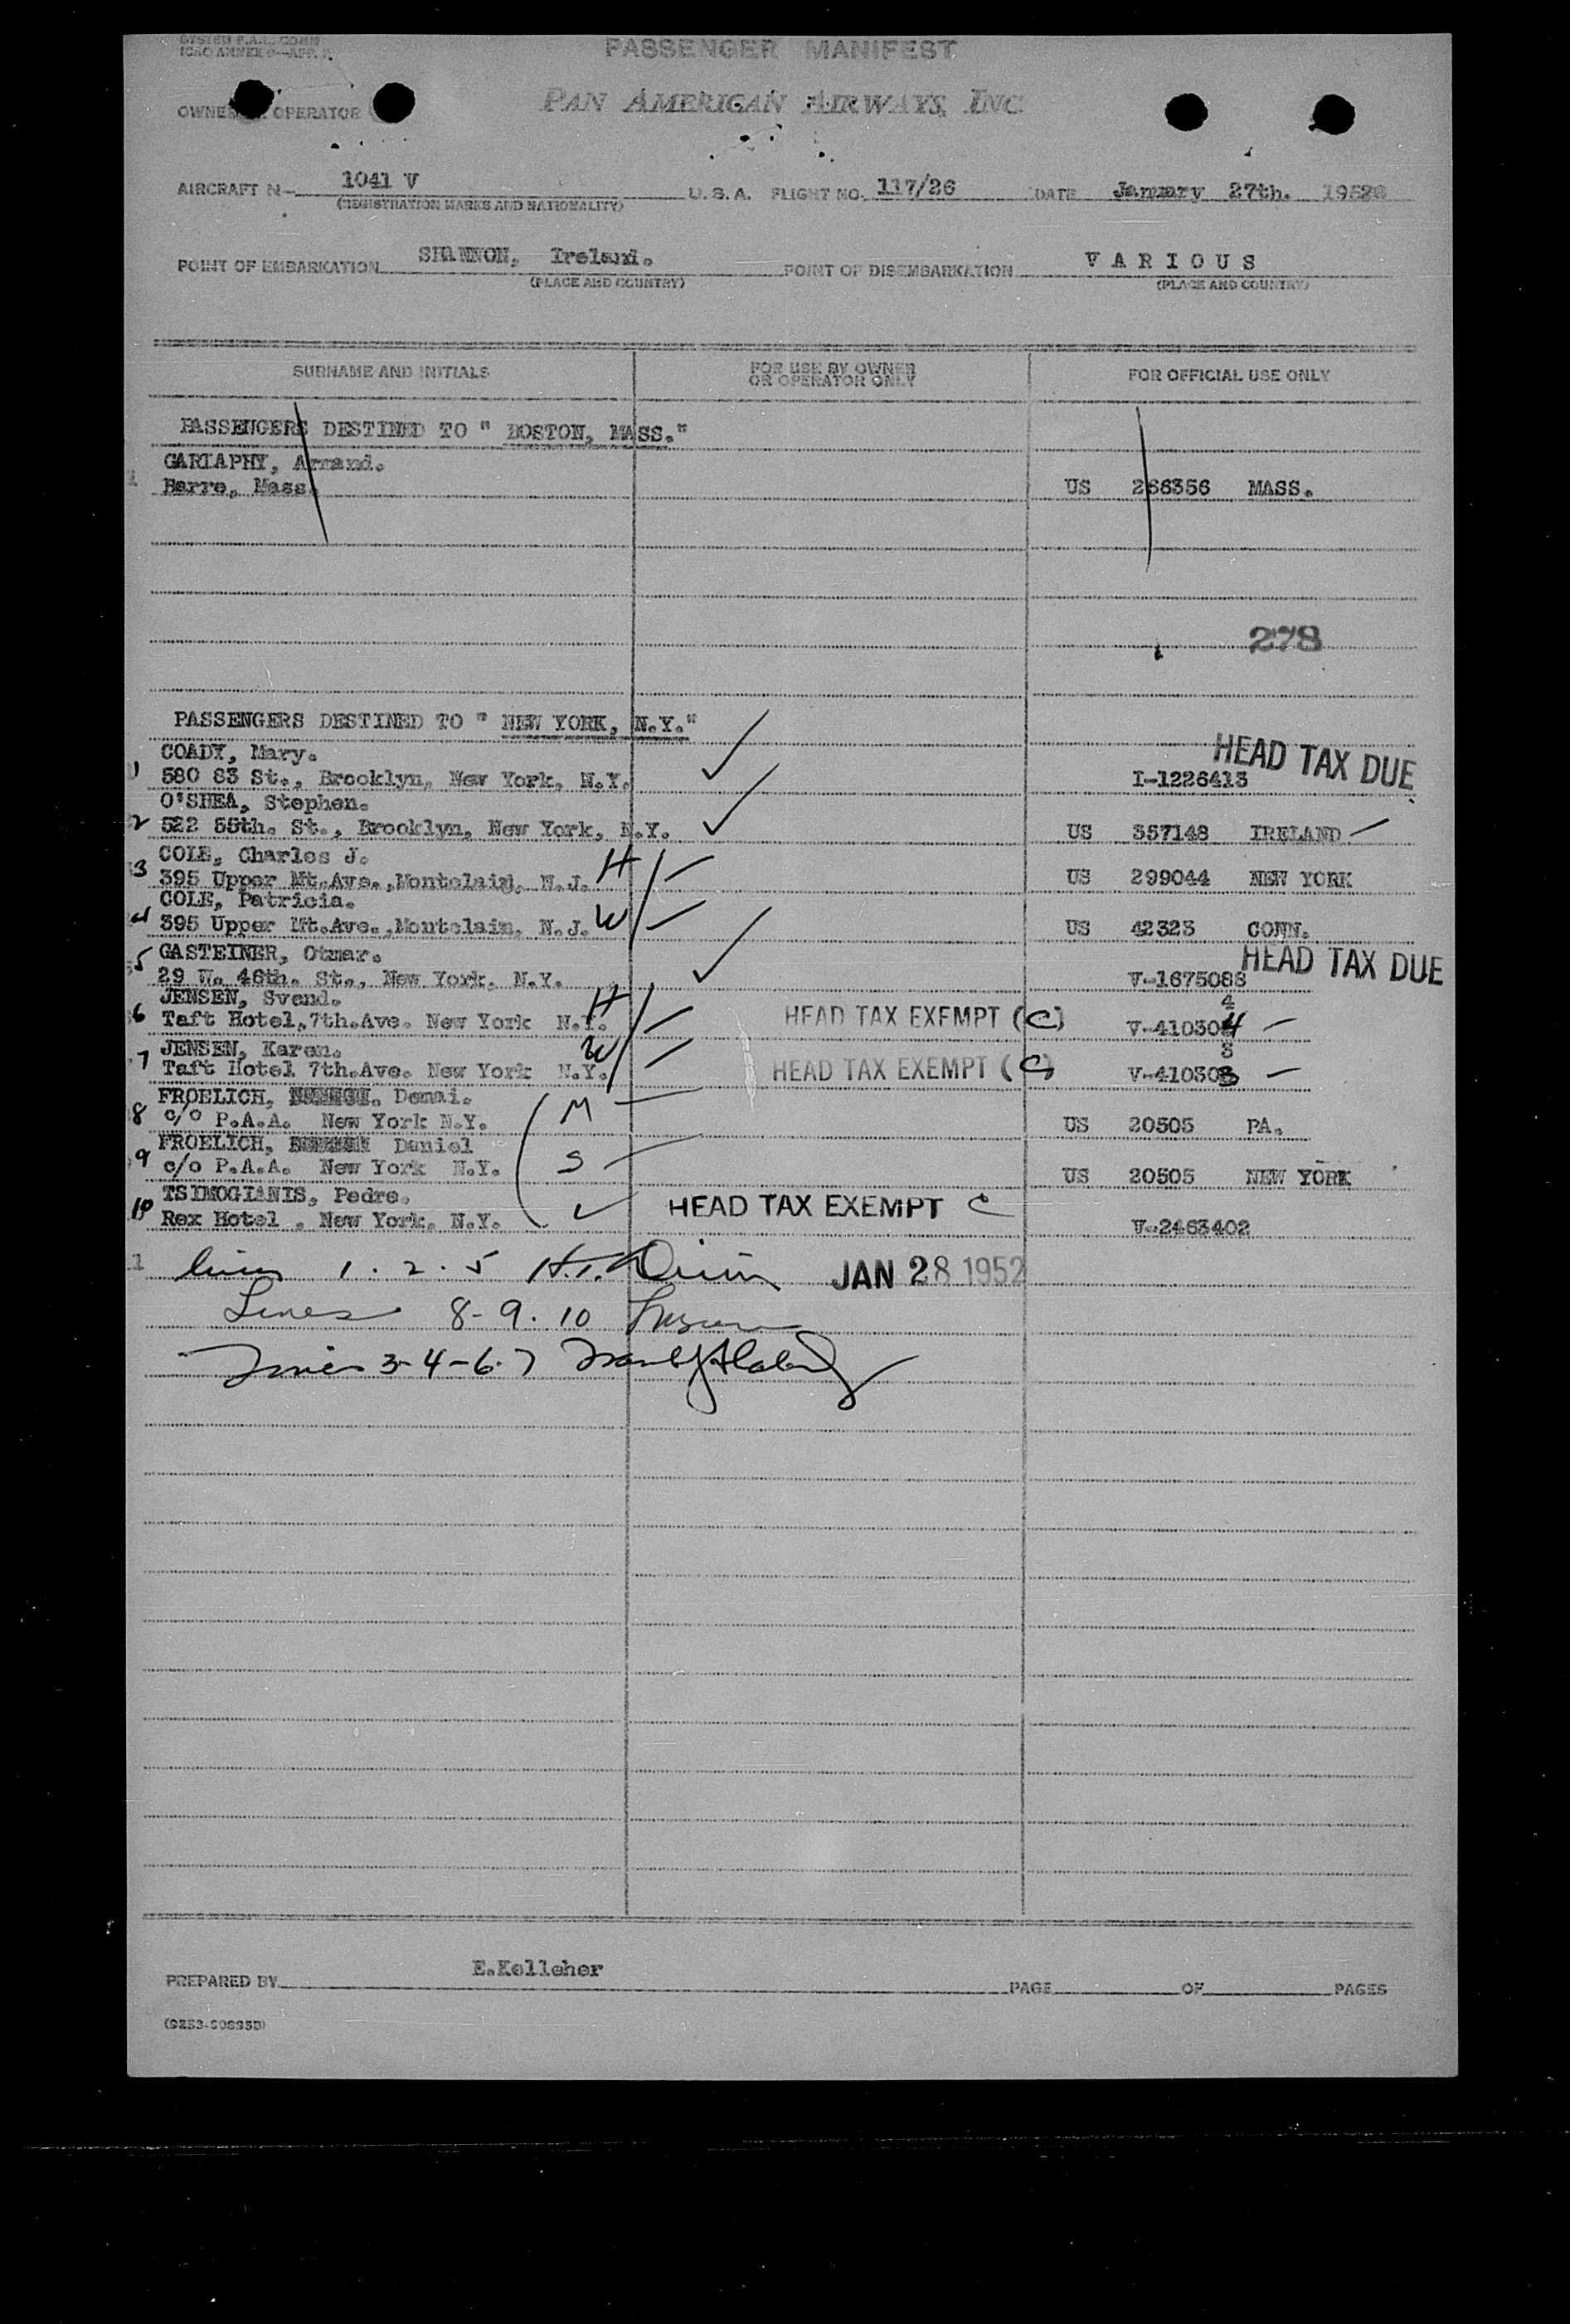 SYSTEM F.A.L. COMM
ICAO ANNEX 9—APP.
PASSENGER MANIFEST
OWNER OPERATOR
PAN AMERICAN AIRWAYS, INC
AIRCRAFT N— 1041 V U.S.A. FLIGHT NO. 117/26 DATE January 27th. 1952
(REGISTRATION MARKS AND NATIONALITY)
POINT OF EMBARKATION SHANNON, Ireland. POINT OF DISEMBARKATION VARIOUS
(PLACE AND COUNTRY) (PLACE AND COUNTRY)
SURNAME AND INITIALS FOR USE BY OWNER OR OPERATOR ONLY FOR OFFICIAL USE ONLY
PASSENGERS DESTINED TO " BOSTON, MASS."
GARIAPHY, Armand.
1 Barre, Mass. US 266356 MASS.
278
PASSENGERS DESTINED TO " NEW YORK, N.Y."
COADY, Mary. HEAD TAX DUE
1 580 83 St., Brooklyn, New York, N.Y. I-1226413
O'SHEA, Stephen.
2 522 55th. St., Brooklyn, New York, N.Y. US 357148 IRELAND
COLE, Charles J. H
3 395 Upper Mt.Ave.,Montclair, N.J. US 299044 NEW YORK
COLE, Patricia.
4 395 Upper Mt.Ave.,Montclair, N.J. W US 42323 CONN.
5 GASTEINER, Otmar. HEAD TAX DUE
29 W. 46th. St., New York, N.Y. V-1675088
JENSEN, Svend. H 4
6 Taft Hotel,7th.Ave. New York N.Y. HEAD TAX EXEMPT (C) V-410304
JENSEN, Karen. W 3
7 Taft Hotel 7th.Ave. New York N.Y. HEAD TAX EXEMPT (C) V-410303
FROELICH, Denai.
8 c/o P.A.A. New York N.Y. M US 20505 PA.
FROELICH, Daniel
9 c/o P.A.A. New York N.Y. S US 20505 NEW YORK
TSIMOGIANIS, Pedro.
10 Rex Hotel , New York, N.Y. HEAD TAX EXEMPT C V-2463402
1 lines 1. 2. 5 H.T. JAN 28 1952
Lines 8-9.10
Lines 3-4-6-7
PREPARED BY E.Kelleher PAGE OF PAGES